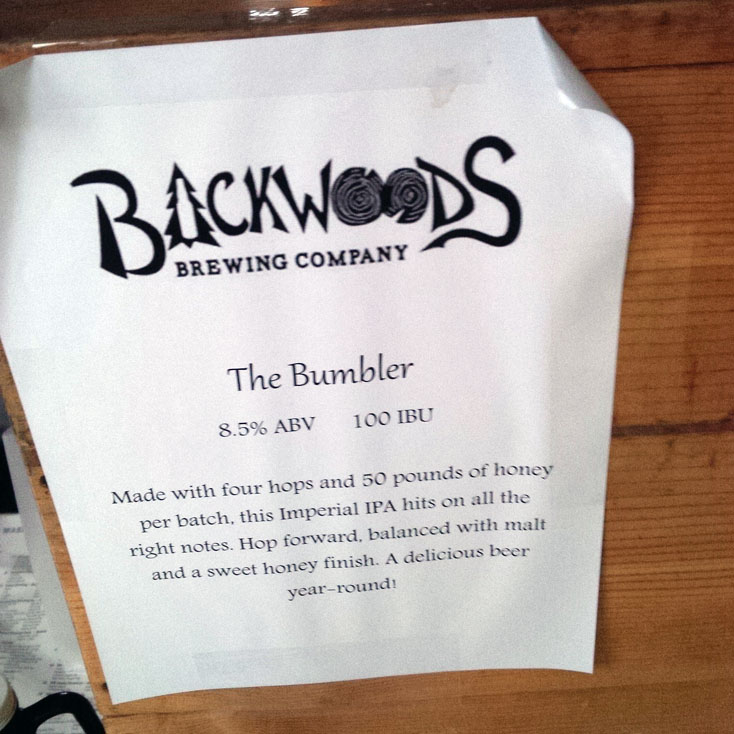 BACKWOODS
BREWING COMPANY
The Bumbler
8.5% ABV 100 IBU
Made with four hops and 50 pounds of honey
per batch, this Imperial IPA hits on all the
right notes. Hop forward, balanced with malt
and a sweet honey finish. A delicious beer
year-round!